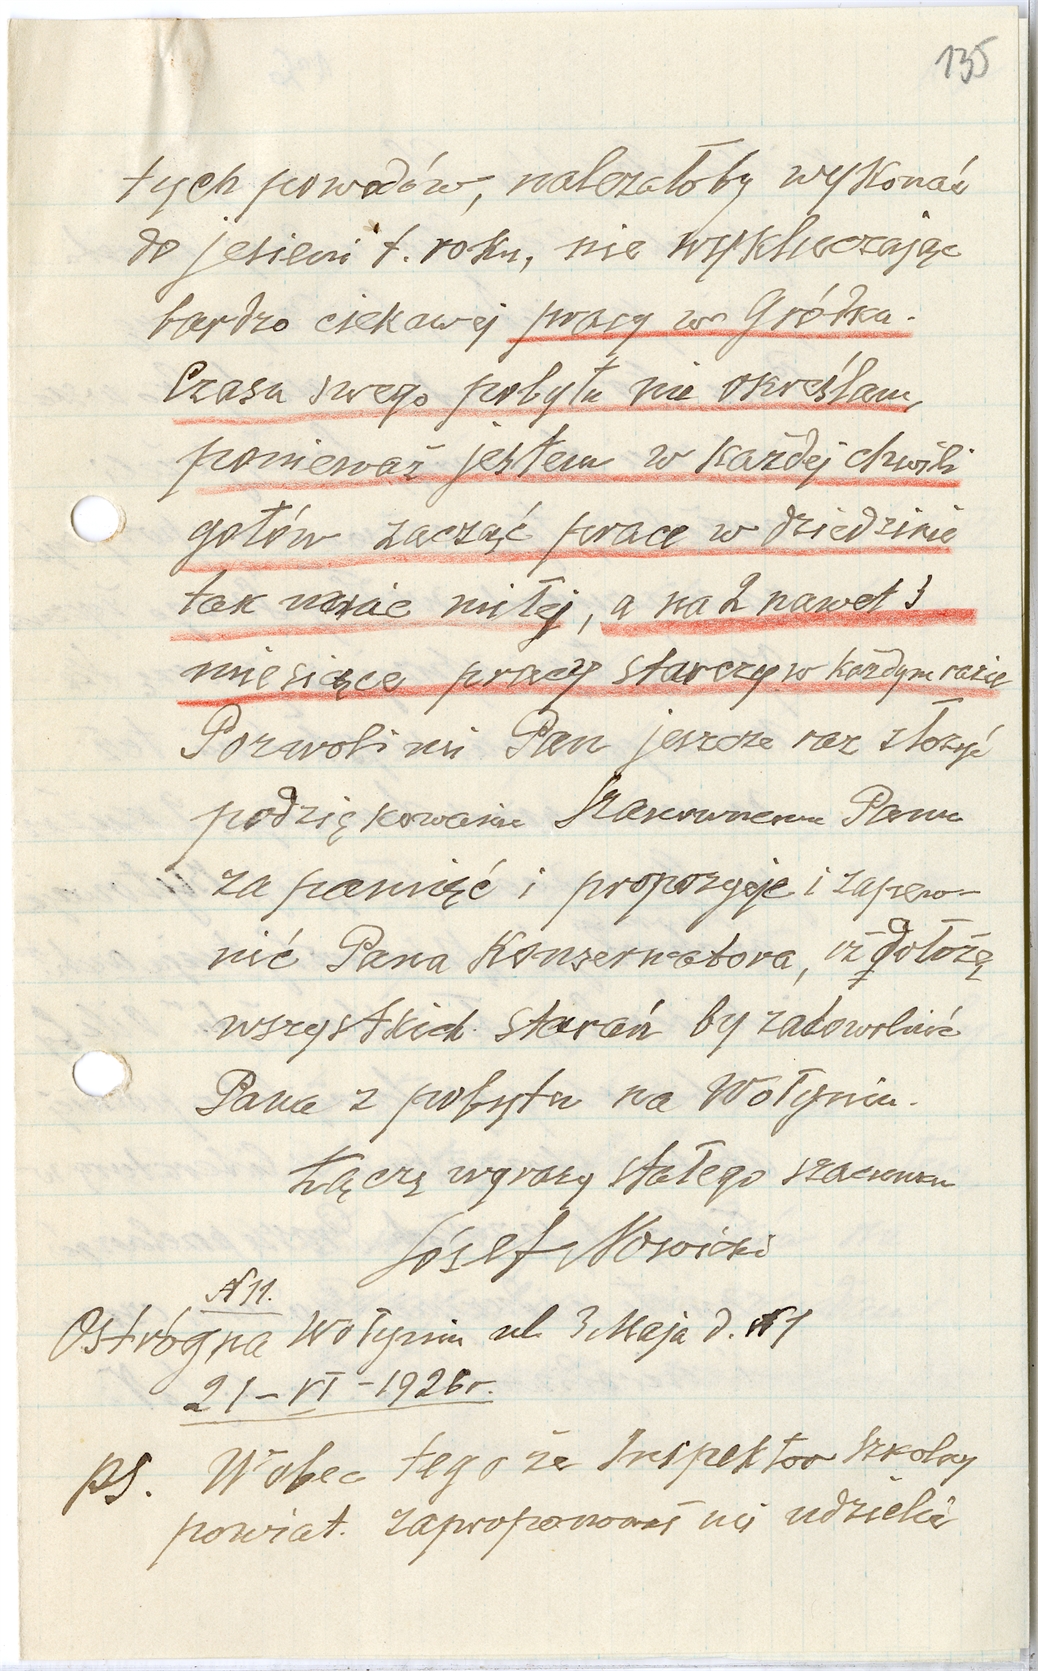 135
tych powodów, należałoby wykonać
do jesieni t. roku, nie wykluczając
bardzo ciekawej pracy w Gródku.
Czasu swego pobytu nie określam,
ponieważ jestem w każdej chwili
gotów zacząć prace w dziedzinie
tak mnie miłej, a na 2 nawet 3
miesiące pracy starczy w każdym razie
Pozwoli mi Pan jeszcze raz złożyć
podziękowanie Szanownemu Panu
za pamięć i propozycje i zapew-
nić Pana Konserwatora, iż dołożę
wszystkich starań by zadowolnić
Pana z pobytu na Wołyniu.
Łączę wyrazy stałego szacunku
Józef Nowicki
N 11.
Ostróg na Wołyniu ul. 3 Maja d. N 1
21-VI-1926 r.
PS. Wobec tego że Inspektor Szkolny
powiat. zaproponował mi udzielić